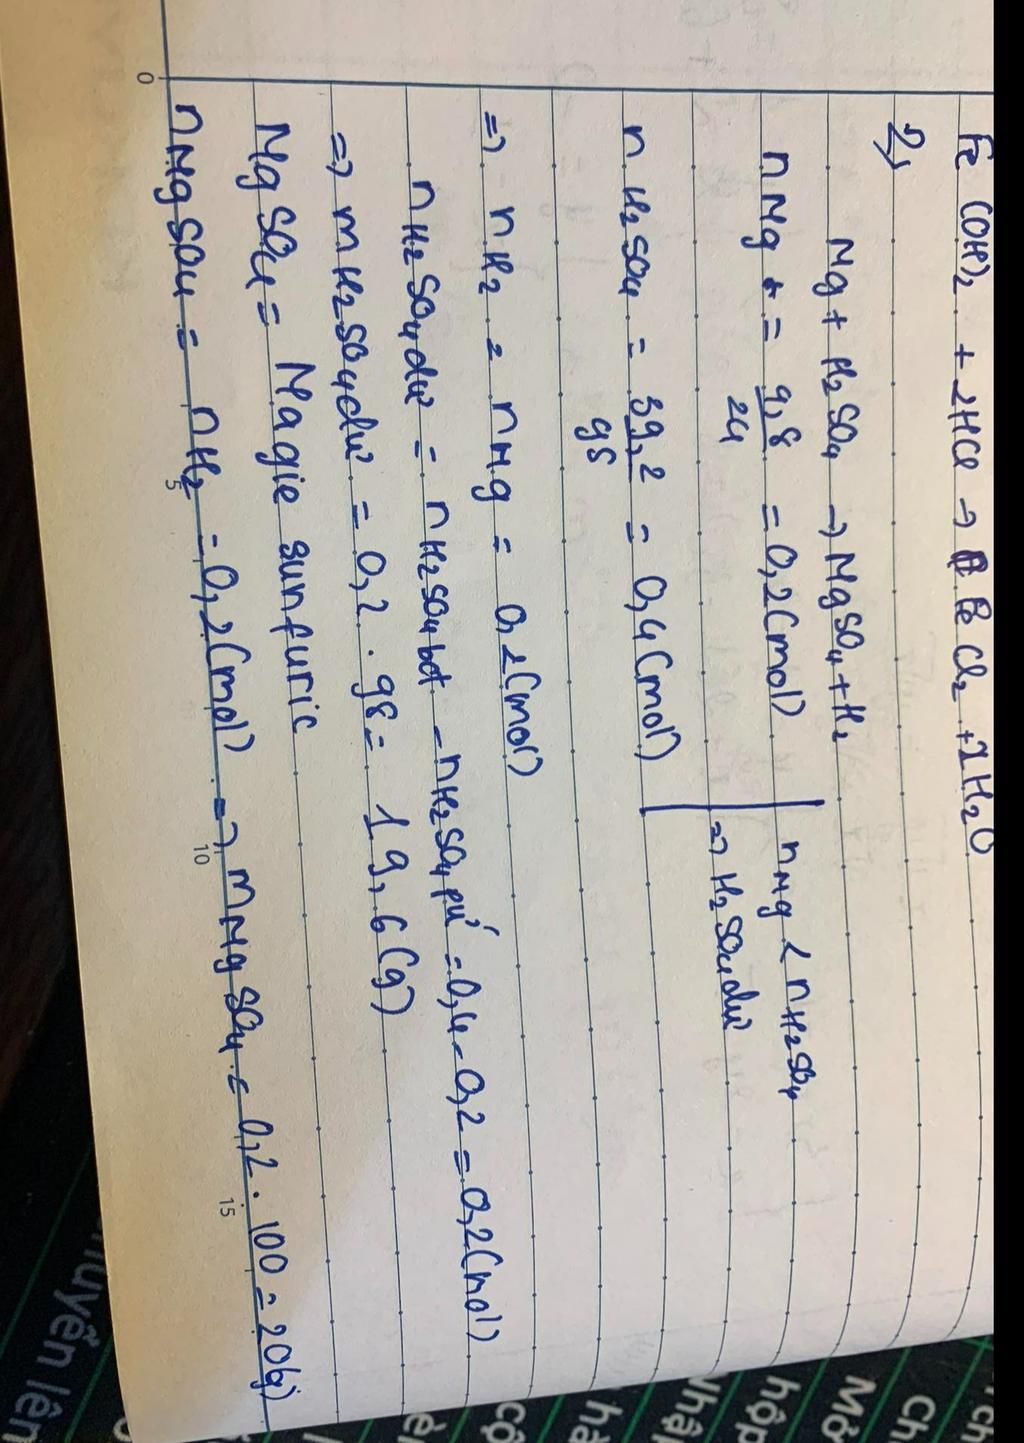 Fe(OH)2 + 2HCl → FeCl2 + 2H2O
2,
Mg + H2SO4 → MgSO4 + H2
nMg = 4,8 = 0,2(mol)
24
nMg < nH2SO4
=> H2SO4 dư
nH2SO4 = 39,2 = 0,4(mol)
98
=> nH2 = nMg = 0,2(mol)
nH2SO4dư = nH2SO4bđ - nH2SO4pứ = 0,4 - 0,2 = 0,2(mol)
=> mH2SO4dư = 0,2 . 98 = 19,6(g)
MgSO4 = Magie sunfuric
nMgSO4 = nH2 = 0,2(mol) => mMgSO4 = 0,2 . 100 = 20(g)
0 5 10 15
ch
Ch
Mở
hộp
Nhập
hã
cộ
uyễn lên